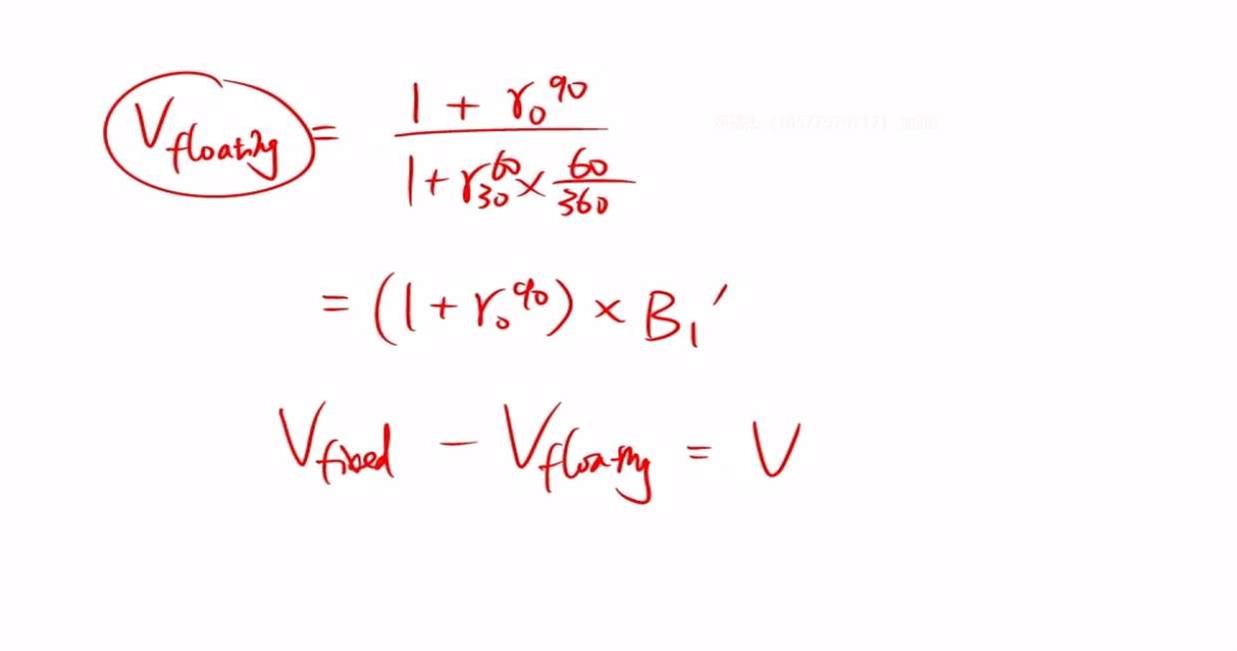 V_floating = (1 + r₀⁹⁰) / (1 + r₃₀⁶⁰ × 60/360)
= (1 + r₀⁹⁰) × B₁′
V_fixed − V_floating = V